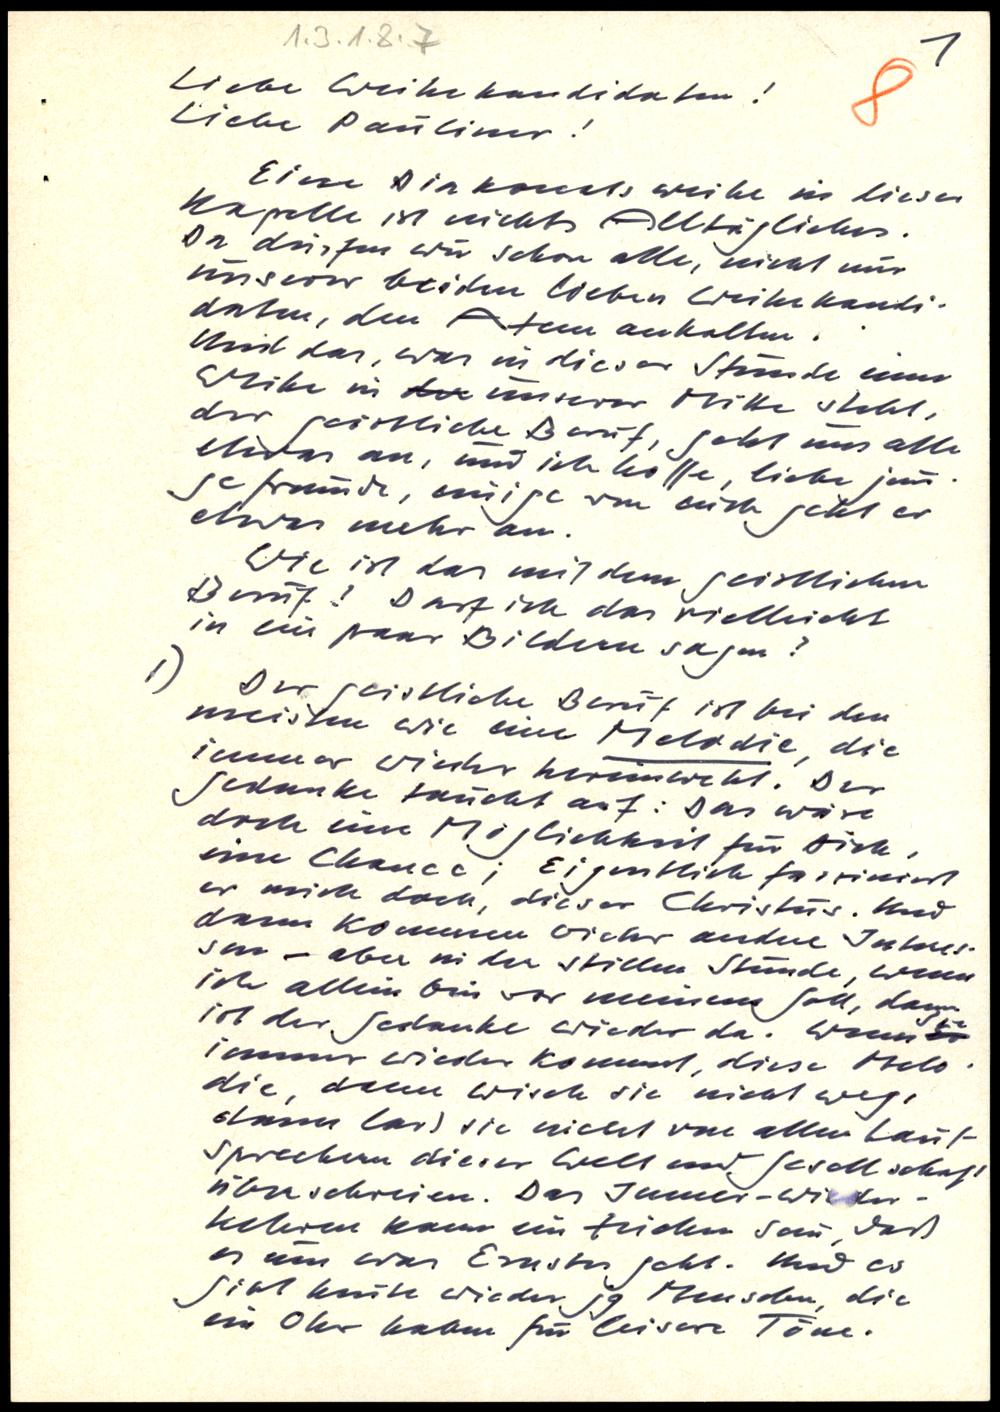 1.3.1.8.7
1
8
Liebe Weihekandidaten!
Liebe Pauliner!
Eine Diakonatsweihe in dieser
Kapelle ist nichts Alltägliches.
Da dürfen wir schon alle, nicht nur
unsere beiden lieben Weihekandi-
daten, den Atem anhalten.
Und das, was in dieser Stunde einer
Weihe in der unserer Mitte steht,
der geistliche Beruf, geht uns alle
etwas an, und ich hoffe, liebe jun-
ge Freunde, einige von euch geht er
etwas mehr an.
Wie ist das mit dem geistlichen
Beruf? Darf ich das vielleicht
in ein paar Bildern sagen?
1)
Der geistliche Beruf ist bei den
meisten wie eine Melodie, die
immer wieder hereinweht. Der
Gedanke taucht auf: Das wäre
doch eine Möglichkeit für Dich,
eine Chance; Eigentlich fasziniert
er mich doch, dieser Christus. Und
dann kommen wieder andere Interes-
sen – aber in der stillen Stunde, wenn
ich allein bin vor meinem Gott, dann
ist der Gedanke wieder da. Wenn sie
immer wieder kommt, diese Melo-
die, dann wisch sie nicht weg,
dann laß sie nicht von allen Laut-
sprechern dieser Welt und Gesellschaft
überschreien. Das Immer-wieder-
kehren kann ein Zeichen sein, daß
es um was Ernstes geht. Und es
gibt heute wieder jg Menschen, die
ein Ohr haben für leisere Töne.